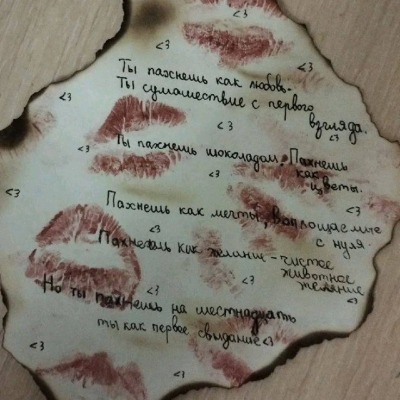 <3
<3
<3
Ты пахнешь как любовь.
Ты сумашествие с первого
взгляда.
<3
<3
<3
Ты пахнешь шоколадом. Пахнешь
как
цветы.
<3
<3
Пахнешь как мечты, воплощаемые
<3
с нуля.
Пахнешь как желание - чистое
животное
желание
<3
<3
<3
Но ты пахнешь на шестнадцать
ты как первое свидание <3
<3
<3
<3